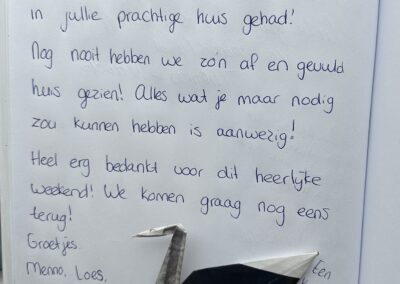 in jullie prachtige huis gehad!
Nog nooit hebben we zo'n af en gevuld
huis gezien! Alles wat je maar nodig
zou kunnen hebben is aanwezig!
Heel erg bedankt voor dit heerlijke
weekend! We komen graag nog eens
terug!
Groetjes
Menno, Loes,
Een